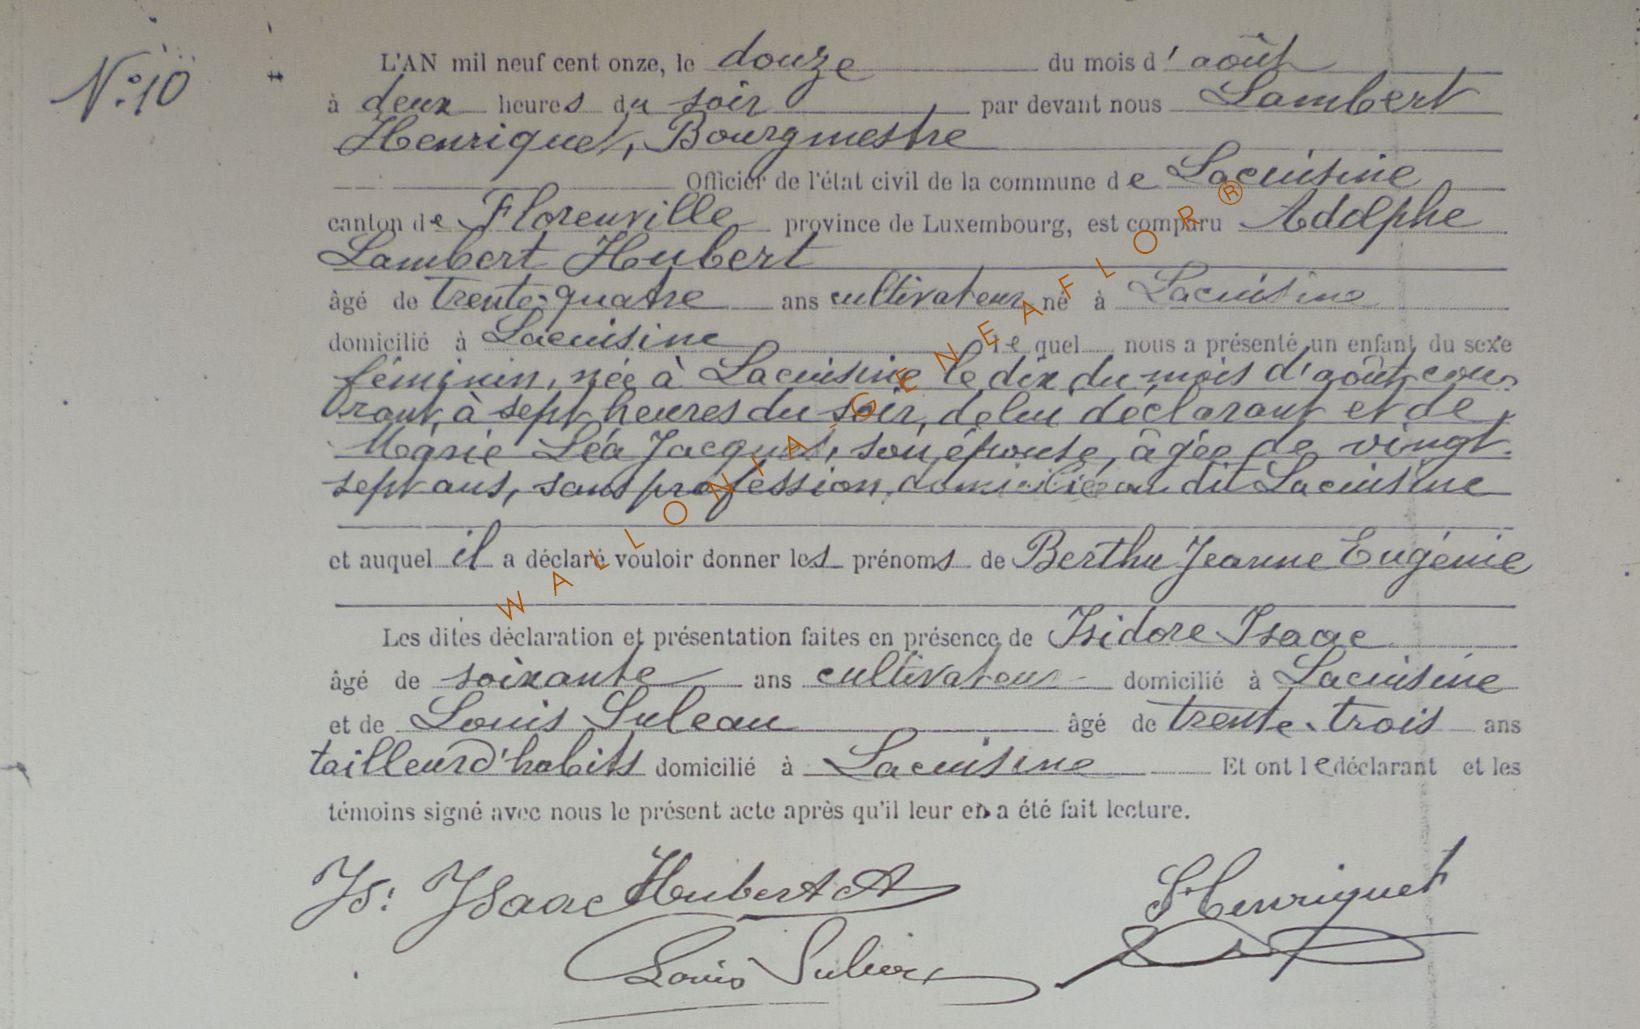 N° 10
L'AN mil neuf cent onze, le douze du mois d'août
à deux heures du soir, par devant nous Lambert
Henriquet, Bourgmestre
Officier de l'état civil de la commune de Lacuisine
canton de Florenville province de Luxembourg, est comparu Adolphe
Lambert Hubert
âgé de trente-quatre ans cultivateur né à Lacuisine
domicilié à Lacuisine lequel nous a présenté un enfant du sexe
féminin, née à Lacuisine le dix du mois d'août cou-
rant, à sept heures du soir, de lui déclarant et de
Marie Léa Jacques, son épouse, âgée de vingt-
sept ans, sans profession, domiciliée au dit Lacuisine
et auquel il a déclaré vouloir donner les prénoms de Bertha Jeanne Eugénie
Les dites déclaration et présentation faites en présence de Isidore Isaac
âgé de soixante ans cultivateur domicilié à Lacuisine
et de Louis Suleau âgé de trente-trois ans
tailleur d'habits domicilié à Lacuisine Et ont le déclarant et les
témoins signé avec nous le présent acte après qu'il leur en a été fait lecture.
Is: Isaac Hubert A L Henriquet
Louis
WALLONIA-GENEAFLOR®